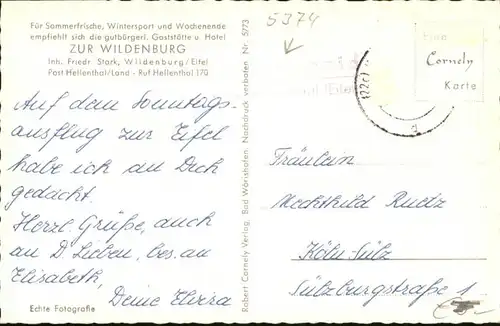 Für Sommerfrische, Wintersport und Wochenende
empfiehlt sich die gutbürgerl. Gaststätte u. Hotel
ZUR WILDENBURG
Inh. Friedr. Stark, Wildenburg/Eifel
Post Hellenthal/Land - Ruf Hellenthal 170
Auf dem Sonntags-
ausflug zur Eifel
habe ich an Dich
gedacht.
Herzl. Grüße, auch
an D. Lieben, bes. an
Elisabeth,
Deine Elvira
Echte Fotografie
Robert Cornely Verlag, Bad Wörishofen. Nachdruck verboten Nr. 5773
5374
(Eifel)
Eine
Cornely
Karte
Fräulein
Mechthild Ruetz
Köln-Sülz
Sülzburgstraße 1